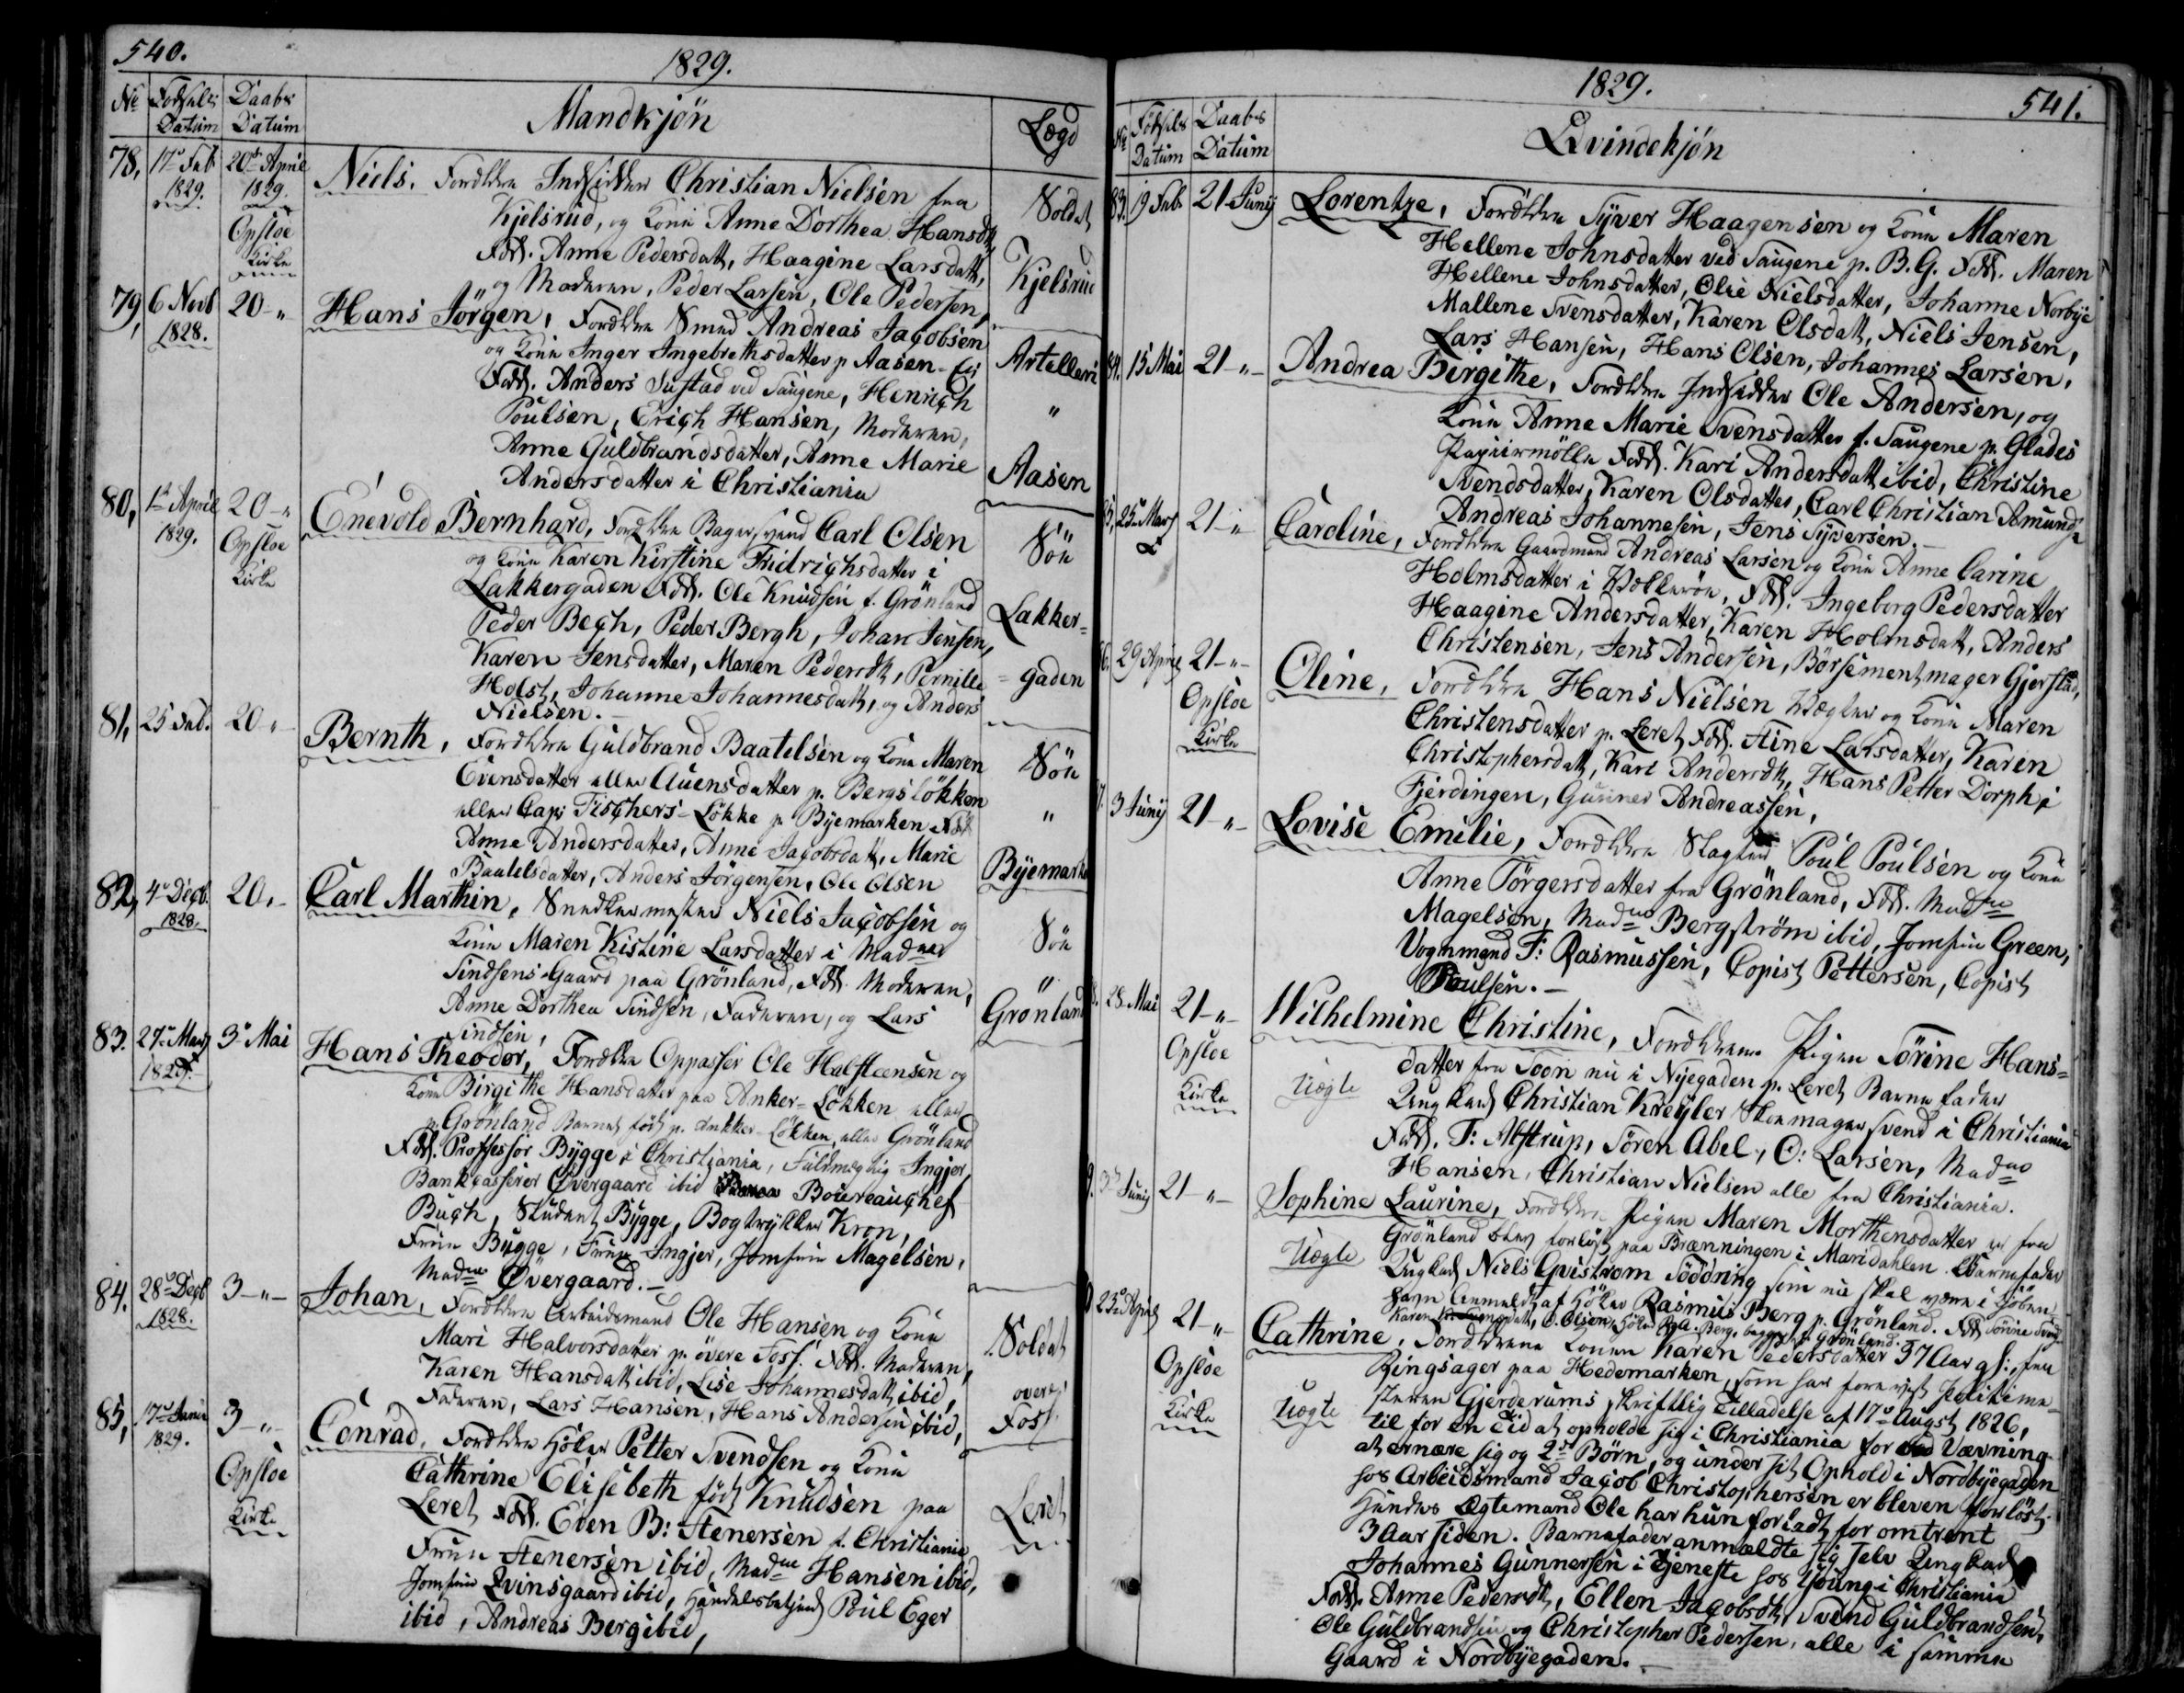 540.
1829.
No Fødsels Datum Daabs Datum Mandkjøn Lægd
78, 17de Feb. 1829. 20de April 1829. Opsloe Kirke
Niels. Forældre Indsidder Christian Nielsen fra
Kjelsrud, og Kone Anne Dorthea Hansdtr,
Fadd. Anne Pedersdatt, Haagine Larsdatt,
og Moderen, Peder Larsen, Ole Pedersen,
Soldat
Kjelsrud
79, 6 Novb 1828. 20 - "
Hans Jörgen, Forældre Smed Andreas Jacobsen
og Kone Inger Ingebrethsdatter p. Aasen
Fadd. Anders Sustad ved Saugene, Henrich
Poulsen, Erich Hansen, Moderen,
Anne Guldbrandsdatter, Anne Marie
Andersdatter i Christiania
Artelleri
"
Aasen
80, 1ste April 1829. 20 - " Opsloe Kirke
Enevold Bernhard, Forældre Bagersvend Carl Olsen
og Kone Karen Kirstine Fridrichsdatter i
Lakkergaden Fadd. Ole Knudsen f. Grönland
Peder Bech, Peder Bergh, Johan Jensen,
Karen Jensdatter, Maren Pedersdtr, Pernille
Holst, Johanne Johannesdatt, og Anders
Nielsen. -
Söe
Lakker=
=gaden
81, 25 Feb. 20 "
Bernth, Forældre Guldbrand Baatelsen og Kone Maren
Evensdatter eller Auensdatter p. Bergslökken
eller Capt Tischers-Lökke p. Byemarken Fadd
Anne Andersdatter, Anne Jacobsdatt, Marie
Baatelsdatter, Anders Jörgensen, Ole Olsen
Söe
"
Byemark
82, 4de Decb. 1828. 20, -
Carl Marthin, Snedkermester Niels Jacobsen og
Kone Maren Kistine Larsdatter i Madme
Sindsens-Gaard paa Grönland, Fadd. Moderen,
Anne Dorthea Sindsen, Faderen, og Lars
Sindsen,
Söe
"
Grönland
83. 27de Marts 1829. 3de Mai
Hans Theodor, Forældre Oppasser Ole Halsteensen og
Kone Birgithe Hansdatter paa Anker-Lökken eller
p. Grönland Barnet født p. Ankker Lökken eller Grönland
Fadd. Proffessor Bugge i Christiania, Fuldmægtig Ingjer,
Bankcasserer Overgaard ibid Boureauchef
Buch, Student Bugge, Bogtrykker Kron,
Frue Bugge, Frue Ingjer, Jomfrue Magelsen,
Madme Øvergaard. -
84. 28de Decb 1828. 3 - " -
Johan, Forældre Arbeidsmand Ole Hansen og Kone
Mari Halvorsdatter p. övere Foss. Fadd. Moderen,
Karen Hansdatt ibid, Lise Johannesdatt ibid,
Faderen, Lars Hansen, Hans Andersen ibid,
Soldat
overe
Foss
85, 17de Janu 1829. 3 - " - Opsloe Kirke
Conrad, Forældre Höker Petter Svendsen og Kone
Cathrine Elisebeth født Knudsen paa
Leret Fadd. Even B: Stenersen f. Christiania
Frue Stenersen ibid, Madme Hansen ibid,
Jomfrue Qvinsgaard ibid, Handelsbetjent Poul Eger
ibid, Andreas Berg ibid,
Leret
1829.
541.
No Fødsels Datum Daabs Datum Qvindekjön
83. 19 Feb. 21 Junij
Lorentze, Forældre Syver Haagensen og Kone Maren
Hellene Johnsdatter ved Saugene p. B.G. Fadd. Maren
Hellene Johnsdatter, Olie Nielsdatter, Johanne Norbye
Mallene Svensdatter, Karen Olsdatt, Niels Jensen,
Lars Hansen, Hans Olsen, Johannes Larsen,
84. 15 Mai 21 - " -
Andrea Birgithe, Forældre Indsidder Ole Andersen, og
Kone Anne Marie Svensdatter f. Saugene p. Glades
Papiirmölle Fadd. Kari Andersdatt ibid, Christine
Svendsdatter, Karen Olsdatter, Carl Christian Amunds
Andreas Johannesen, Jens Syversen. -
85, 25de Marts 21 - "
Caroline, Forældre Gaardmand Andreas Larsen og Kone Anne Carine
Holmsdatter i Wolleröe, Fadd. Ingeborg Pedersdatter
Haagine Andersdatter, Karen Holmsdatt, Anders
Christensen, Jens Andersen, Börsementmager Gjerstad,
6. 29 April 21 - " - Opsloe Kirke
Oline, Forældre Hans Nielsen Wægter og Kone Maren
Christensdatter p. Leret Fadd. Stine Larsdatter, Karen
Christophersdatt, Kari Andersdtr, Hans Petter Dorph i
Fjerdingen, Gunner Andreassen,
7. 3 Junij 21 - " -
Lovise Emilie, Forældre Slagter Poul Poulsen og Kone
Anne Törgersdatter fra Grönland, Fadd. Madme
Magelsen, Madme Bergström ibid, Jomfrue Green,
Vognmand F: Rasmussen, Copist Pettersen, Copist
Poulsen. -
8. 28. Mai 21 - " - Opsloe Kirke
Uægte
Wilhelmine Christine, Forældrene Pigen Sörine Hans=
datter fra Soon nu i Nyegaden p. Leret Barnefader
Ungkarl Christian Kreyler Skomagersvend i Christiania
Fadd. T: Alstrup, Sören Abel, O: Larsen, Madme
Hansen, Christian Nielsen alle fra Christiania.
9. 3de Junij 21 - " -
Uægte
Sophine Laurine, Forældre Pigen Maren Morthensdatter er fra
Grönland blev forløst paa Brænningen i Maridahlen. Barnefader
Ungkarl Niels Qviström Söddring som nu skal være i Kjöben
havn Anmeldt af Höker Rasmus Berg p. Grönland. Fadd Sörine Svend
Karen dt, O. Olsen, Höker R. A. Berg, begge f. Grönland.
0 23de April 21 - " - Opsloe Kirke
Uægte
Cathrine, Forældrene Konen Karen Pedersdatter 37 Aar gl: fra
Ringsager paa Hedemarken, som har forevist Politime
steren Gjerderums skriftlig Tilladelse af 17de Augst 1826,
til for en Tid at opholde sig i Christiania for ved Vævning
at ernære sig og 2de Börn, og under sit Ophold i Nordbyegaden
hos Arbeidsmand Jacob Christophersen er bleven forlöst.
Hendes Ægtemand Ole har hun forladt for omtrent
3 Aar siden. Barnefader anmældte sig selv Ungkarl
Johannes Gunnersen i Tjeneste hos Young i Christiania
Fadd. Anne Pedersdtr, Ellen Jacobsdtr, Svend Guldbrandsen,
Ole Guldbrandsen og Christopher Pedersen, alle i samme
Gaard i Nordbyegaden. -